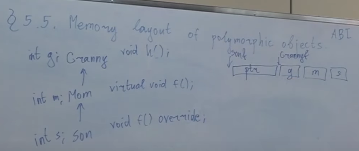 § 5.5. Memory layout of polymorphic objects ABI
int g; Granny void h();
ptr g m s
int m; Mom virtual void f();
int s; Son void f() override;